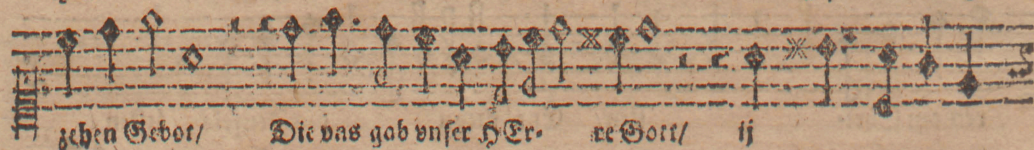 zehen Gebot/ Die vns gab vnser HEr- re Gott/ ij